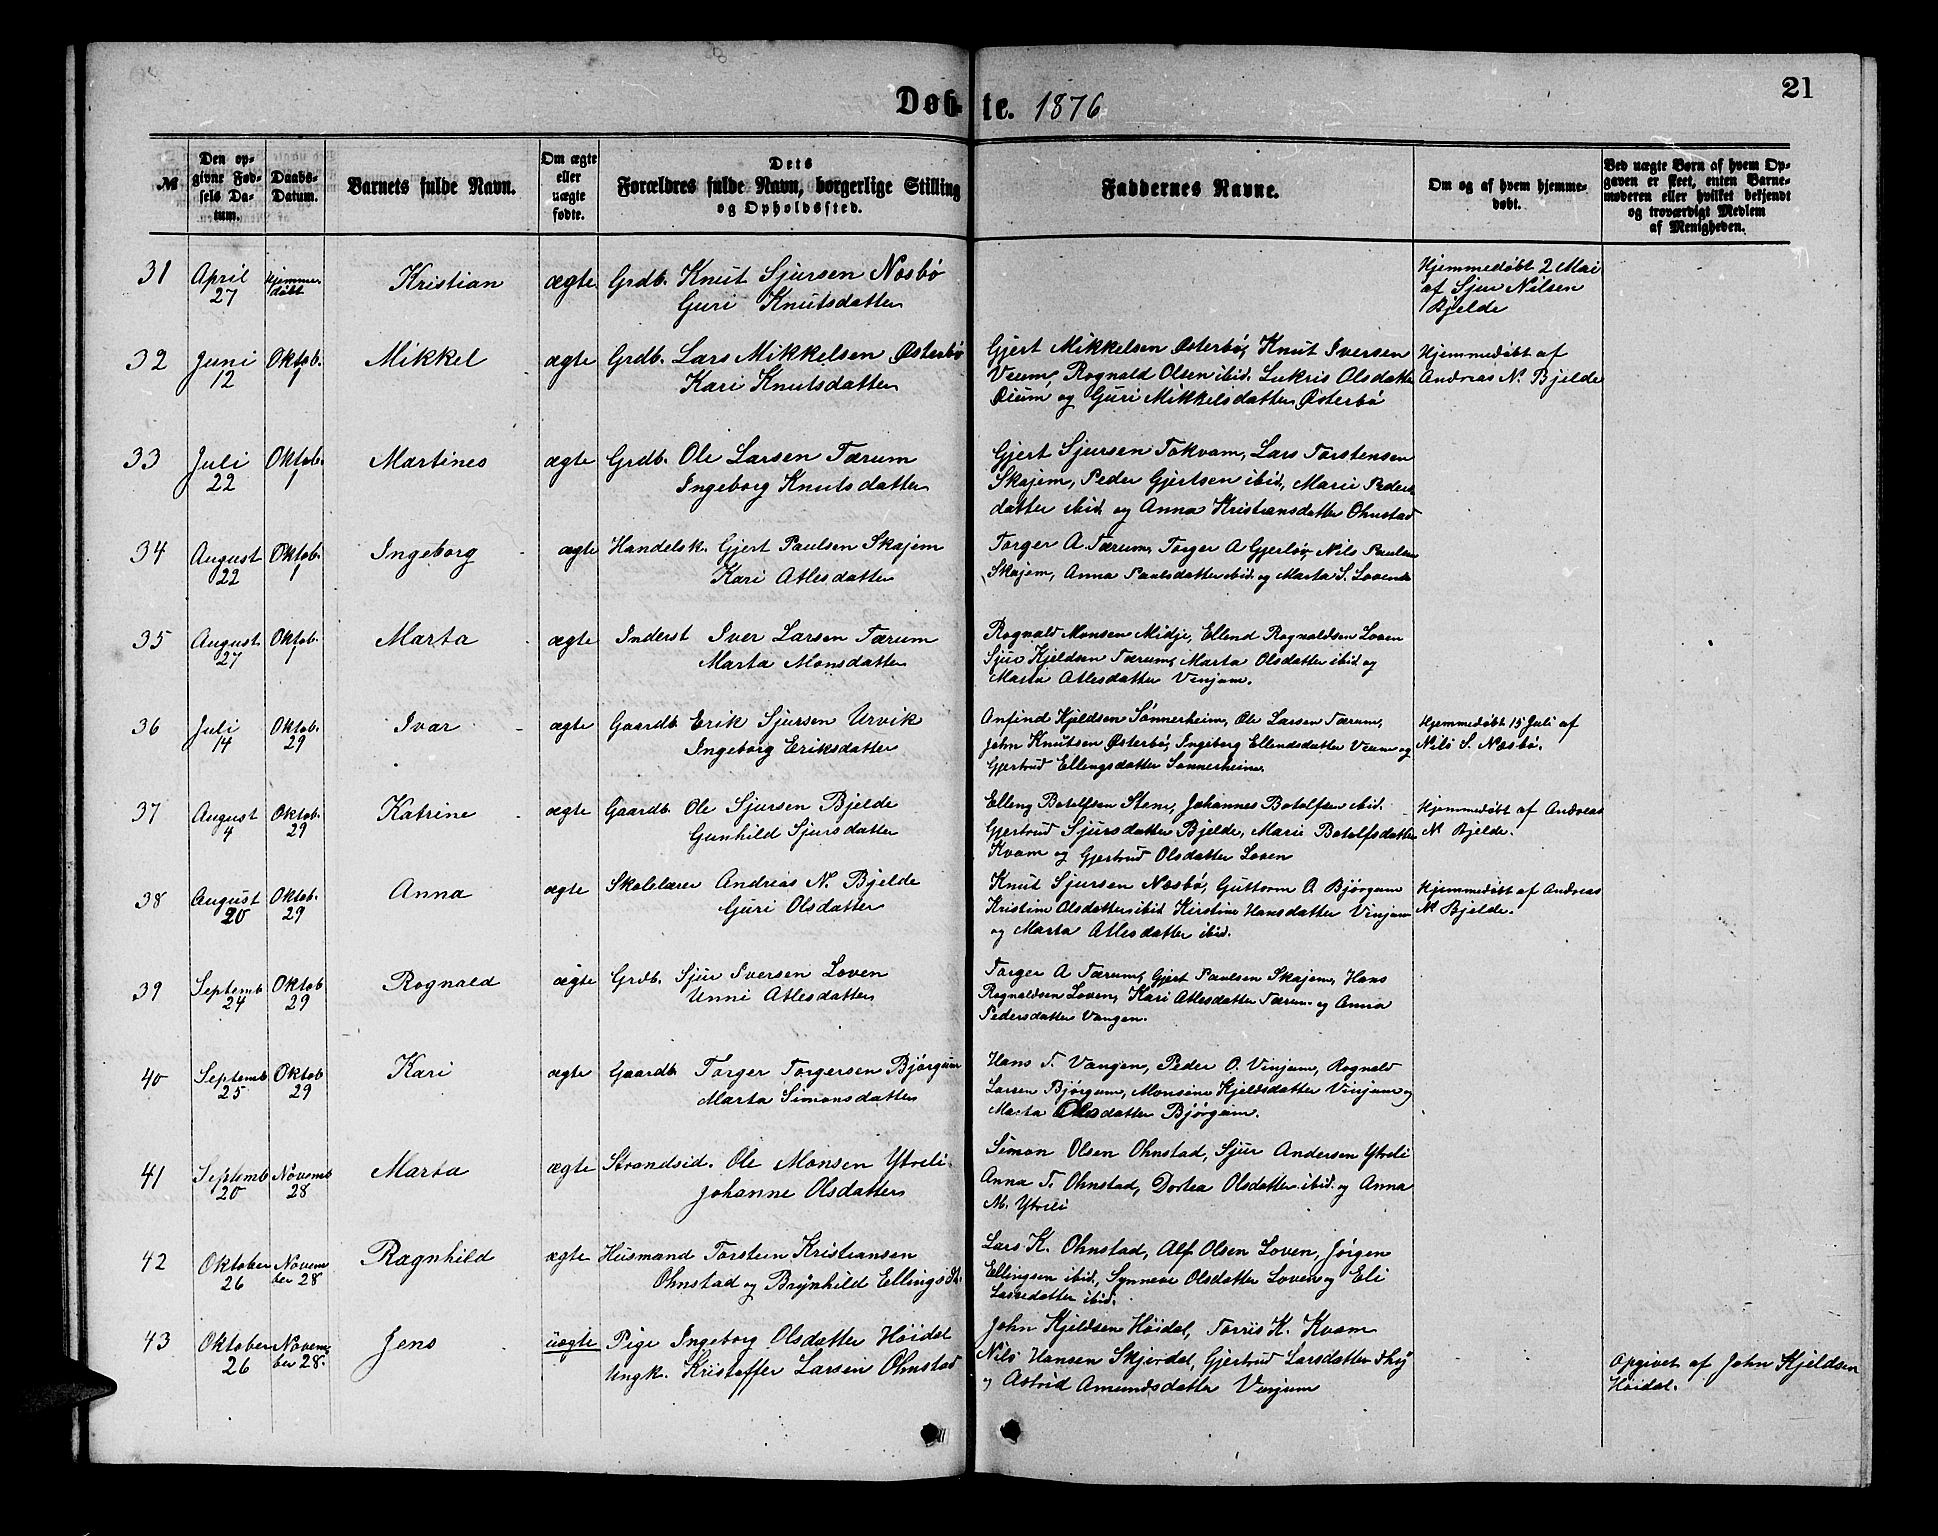 Døb-te. 1876
21
№
Den op-
givne Fød-
sels Da-
tum.
Daabs-
Datum.
Barnets fulde Navn.
Om ægte
eller
uægte
fødte.
Dets
Forældres fulde Navn, borgerlige Stilling
og Opholdssted.
Faddernes Navne.
Om og af hvem hjemme-
døbt.
Ved uægte Børn af hvem Op-
gaven er skeet, enten Barne-
moderen eller hvilket bekjendt
og troværdigt Medlem
af Menigheden.
31 April 27 Hjemmedøbt Kristian ægte Grdb. Knut Sjursen Næsbø
Guri Knutsdatter
Hjemmedøbt 2 Mai
af Sjur Nilsen
Bjelde
32 Juni 12 Oktob. 1 Mikkel ægte Grdb. Lars Mikkelsen Østerbø
Kari Knutsdatter
Gjert Mikkelsen Østerbø, Knut Iversen
Veum, Rognald Olsen ibid. Lukris Olsdatter
Øium og Guri Mikkelsdatter Østerbø
Hjemmedøbt af
Andreas N. Bjelde
33 Juli 22 Oktob. 1 Martines ægte Grdb. Ole Larsen Tærum
Ingeborg Knutsdatter
Gjert Sjursen Tokvam, Lars Torstensen
Skajem, Peder Gjertsen ibid, Marie Peders
datter ibid og Anna Kristiansdatter Ohnstad
34 August 22 Oktob. 1 Ingeborg ægte Handelsk. Gjert Paulsen Skajem
Kari Atlesdatter
Torger A Tærum, Torger A Gjerløv, Nils Paulsen
Skajem, Anna Paulsdatter ibid og Marta S. Loven
35 August 27 Oktob. 1 Marta ægte Inderst Iver Larsen Tærum
Marta Monsdatter
Rognald Monsen Midje, Ellend Rognaldsen Loven
Sjur Kjeldsen Tærum, Marta Olsdatter ibid og
Marta Atlesdatter Vinjum.
36 Juli 14 Oktob. 29 Ivar ægte Gaardb. Erik Sjursen Urvik
Ingeborg Eriksdatter
Anfind Kjeldsen Sønnerheim, Ole Larsen Tærum,
John Knutsen Østerbø, Ingeborg Ellendsdatter Veum og
Gjertrud Ellingsdatter Sønnerheim.
Hjemmedøbt 15 Juli af
Nils S. Næsbø.
37 August 4 Oktob. 29 Katrine ægte Gaardb. Ole Sjursen Bjelde
Gunhild Sjursdatter
Elling Botolfsen Stene, Johannes Botolfsen ibid.
Gjertrud Sjursdatter Bjelde, Marie Botolfsdatter
Kvam og Gjertrud Olsdatter Loven
Hjemmedøbt af Andreas
N. Bjelde.
38 August 20 Oktob. 29 Anna ægte Skolelærer Andreas N. Bjelde
Guri Olsdatter
Knut Sjursen Næsbø, Guttorm O Bjørgum
Kristine Olsdatter ibid Kirstine Hansdatter Vinjum
og Marta Atlesdatter ibid.
Hjemmedøbt af Andreas
N. Bjelde.
39 Septemb 24 Oktob 29 Rognald ægte Grdb. Sjur Iversen Loven
Unni Atlesdatter
Torger A Tærum, Gjert Paulsen Skajem, Hans
Rognaldsen Loven, Kari Atlesdatter Tærum og Anna
Pedersdatter Vangen.
40 Septemb 25 Oktob 29 Kari ægte Gaardb. Torger Torgersen Bjørgum
Marta Simonsdatter
Hans T. Vangen, Peder O. Vinjum, Rognald
Larsen Bjørgum, Monsine Kjeldsdatter Vinjum og
Marta Olsdatter Bjørgum.
41 Septemb 20 Novemb 28 Marta ægte Strandsid. Ole Monsen Ytreli
Johanne Olsdatter
Simon Olsen Ohnstad, Sjur Andersen Ytreli
Anna T. Ohnstad, Dortea Olsdatter ibid. og Anna
M. Ytreli
42 Oktober 26 November 28 Ragnhild ægte Husmand Torstein Kristiansen
Ohnstad og Brynhild Ellingsdt.
Lars K. Ohnstad, Alf Olsen Loven, Jørgen
Ellingsen ibid, Synneve Olsdatter Loven og Eli
Lassedatter ibid.
43 Oktober 26 November 28. Jens uægte Pige Ingeborg Olsdatter Høidal
Ungk. Kristoffer Larsen Ohnstad
John Kjeldsen Høidal, Torris K. Kvam
Nils Hansen Skjerdal, Gjertrud Larsdatter Thy
og Astrid Amundsdatter Vinjum
Opgivet af John Kjeldsen
Høidal.